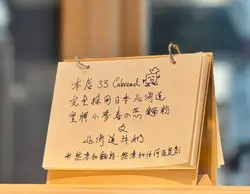 本店 33 Cubread
完全採用日本北海道
皇牌小麥春の恋麵粉
及
北海道牛奶